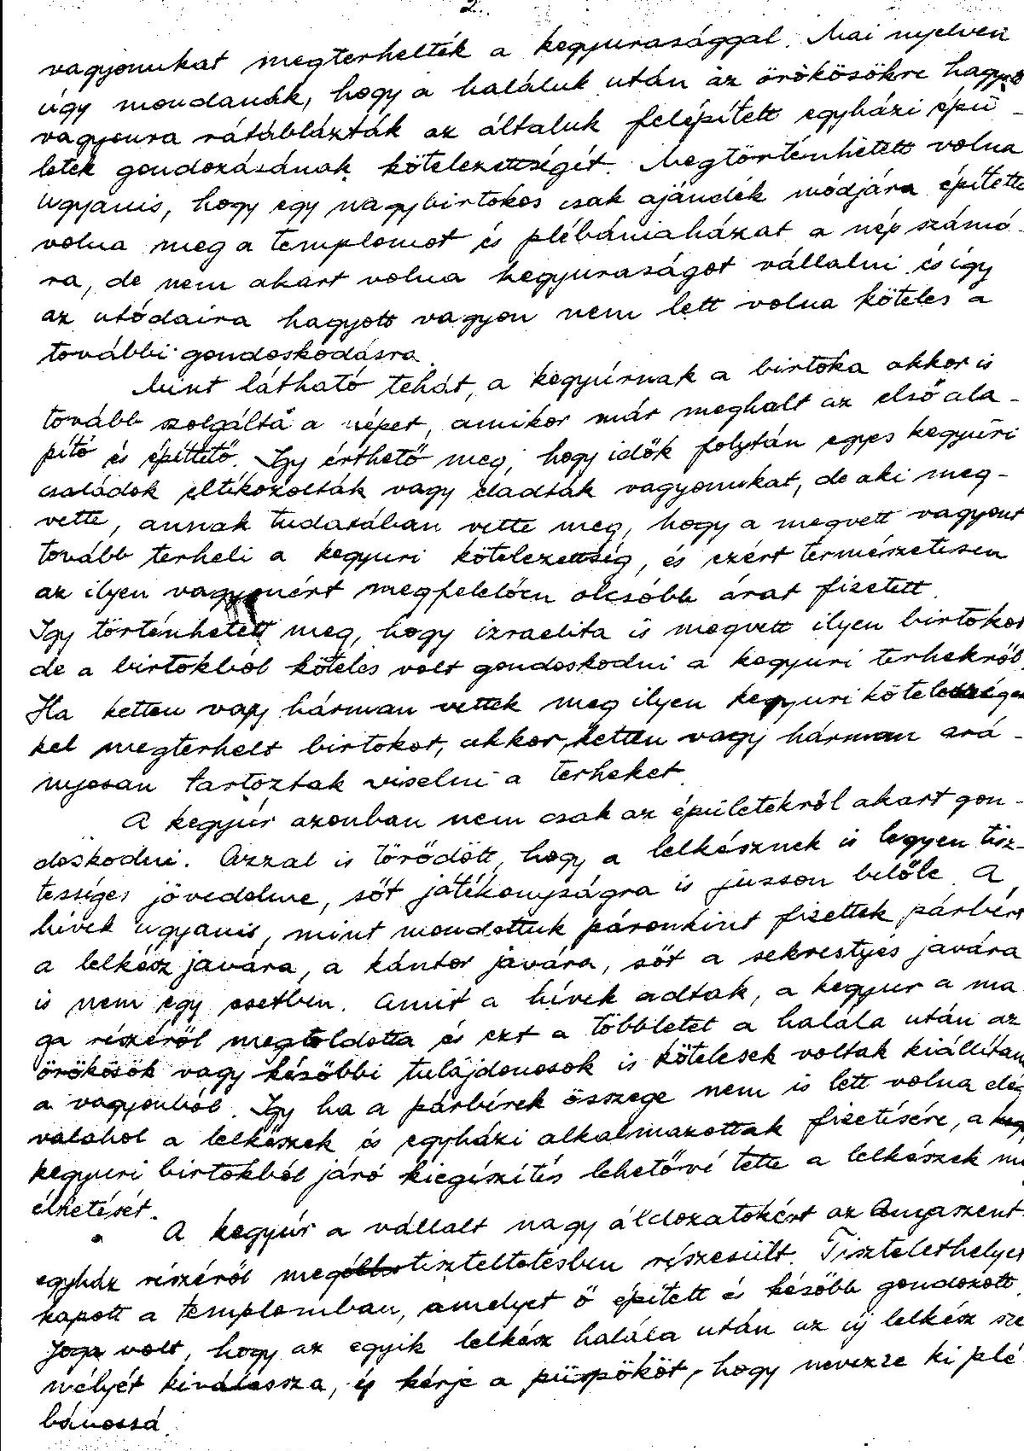 2.
vagyonukat megterhelték a kegyurasággal. Mai nyelven
úgy mondanák, hogy a haláluk után az örökösökre hagyott
vagyonra rátáblázták az általuk felépített egyházi épü-
letek gondozásának kötelezettségét. Megtörténhetett volna
ugyanis, hogy egy nagybirtokos csak ajándék módjára építette
volna meg a templomot és plébániaházat a nép számá-
ra, de nem akart volna kegyuraságot vállalni és így
az utódaira hagyott vagyon nem lett volna köteles a
további gondoskodásra.
Mint látható tehát, a kegyúrnak a birtoka akkor is
tovább szolgálta a népet, amikor már meghalt az első ala-
pító és építtető. Így érthető meg, hogy idők folytán egyes kegyúri
családok eltékozolták vagy eladták vagyonukat, de aki meg-
vette, annak tudatában vette meg, hogy a megvett vagyont
tovább terheli a kegyuri kötelezettség, és ezért természetesen
az ilyen vagyonért megfelelően olcsóbb árat fizetett.
Így történhetett meg, hogy izraelita is megvett ilyen birtokot
de a birtokból köteles volt gondoskodni a kegyuri terhekről.
Ha ketten vagy hárman vettek meg ilyen kegyuri kötelezettségek-
kel megterhelt birtokot, akkor ketten vagy hárman ará-
nyosan tartoztak viselni a terheket.
A kegyúr azonban nem csak az épületekről akart gon-
doskodni. Azzal is törődött, hogy a lelkésznek is legyen tisz-
tességes jövedelme, sőt jótékonyságra is jusson belőle. A
hívek ugyanis, mint mondottuk páronkint fizettek párbért
a lelkész javára, a kántor javára, sőt a sekrestyés javára
is nem egy esetben. Amit a hívek adtak, a kegyur a ma-
ga részéről megtoldotta és ezt a többletet a halála után az
örökösök vagy későbbi tulajdonosok is kötelesek voltak kiállítani
a vagyonból. Így ha a párbérek összege nem is lett volna elég
valahol a lelkészek és egyházi alkalmazottak fizetésére, a
kegyuri birtokból járó kiegészítés lehetővé tette a lelkészek meg-
élhetését.
A kegyúr a vállalt nagy áldozatokért az Anyaszent-
egyház részéről megtiszteltetésben részesült. Tisztelethelyet
kapott a templomban, amelyet ő épített és később gondozott.
Joga volt, hogy az egyik lelkész halála után az új lelkész sze-
mélyét kiválassza, és kérje a püspököt, hogy nevezze ki plé-
bánossá.